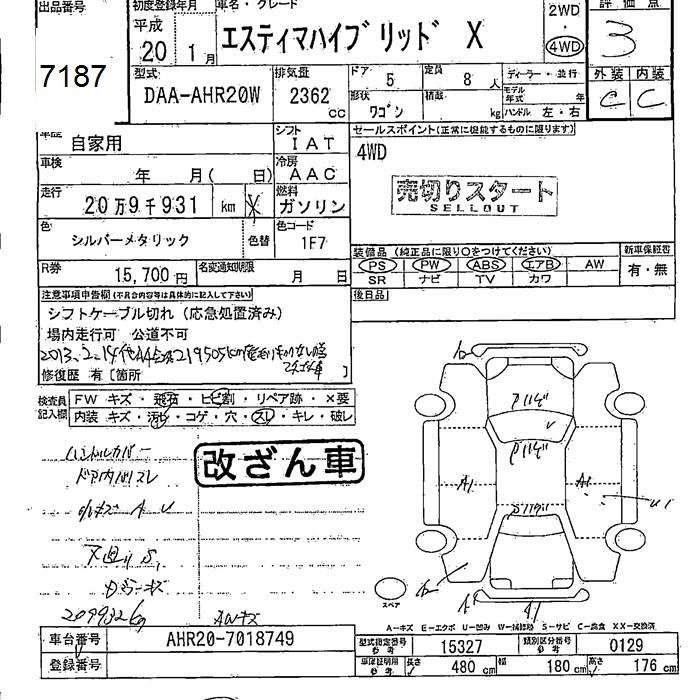 出品番号
初度登録年月
車名・グレード
2WD
評価点
平成
20 1月
エスティマハイブリッド X
・
4WD
3
7187
型式
排気量
ドア 5
定員 8人
ディーラー・並行
外装 内装
DAA-AHR20W
2362 cc
形状 ワゴン
積載 kg
モデル年式 年
ハンドル 左・右
C C
車歴 自家用
シフト IAT
セールスポイント(正常に機能するものに限ります)
車検 年 月( 日)
冷房 AAC
4WD
走行 20万9千931 km
燃料 ガソリン
売切りスタート
SELLOUT
色 シルバーメタリック
色替
色コード 1F7
装備品 (純正品に限り○をつけてください)
新車保証書
R券 15,700円
名変通知期限 月 日
PS PW ABS エアB AW
有・無
SR ナビ TV カワ
注意事項申告欄(不具合内容等は具体的に記入して下さい)
後日品
シフトケーブル切れ (応急処置済み)
場内走行可 公道不可
修復歴 有〔箇所 〕
検査員記入欄
FW キズ・飛石・ヒビ割・リペア跡・×要
内装 キズ・汚れ・コゲ・穴・スレ・キレ・破レ
改ざん車
ハンドルカバー
ドア内バリスレ
A1 A1
209932kg
スペア
A1
A−キズ E−エクボ U−凹み W−補修跡 S−サビ C−腐食 XX−交換済
車台番号 AHR20-7018749
型式指定番号 参考 15327
類別区分番号 参考 0129
登録番号
車庫証明用 参考
長さ 480 cm
幅 180 cm
高さ 176 cm